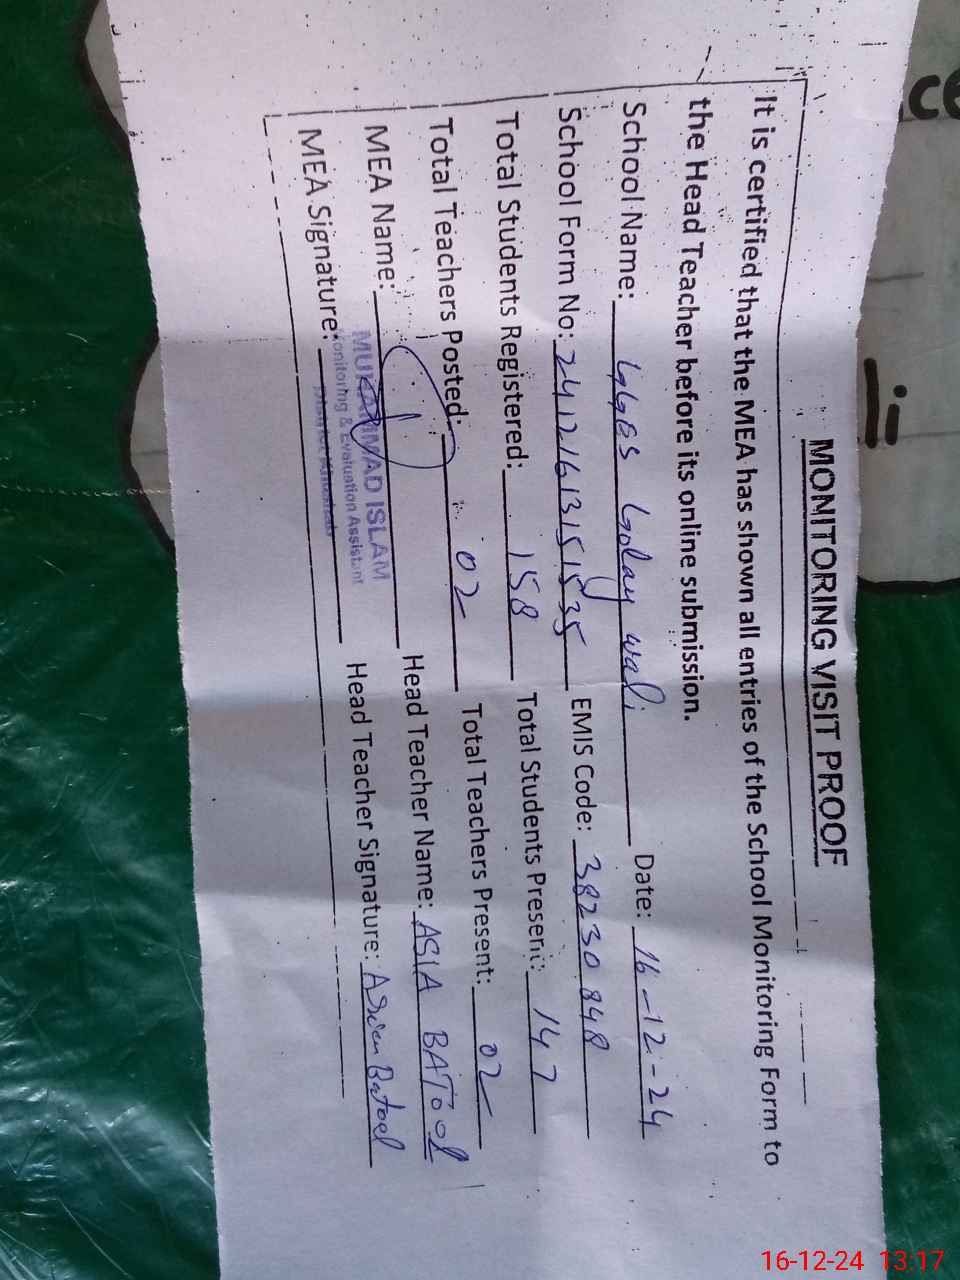 MONITORING VISIT PROOF
It is certified that the MEA has shown all entries of the School Monitoring Form to
the Head Teacher before its online submission.
School Name: GGES Golay wali Date: 16-12-24
School Form No: 24121613151535 EMIS Code: 38230848
Total Students Registered: 158 Total Students Present: 147
Total Teachers Posted: 02 Total Teachers Present: 02
MEA Name: MUKAMMAD ISLAM Head Teacher Name: ASIA BATOOL
Monitoring & Evaluation Assistant
District Khushab
MEA Signature: Head Teacher Signature: Asia Batool
16-12-24 13:17